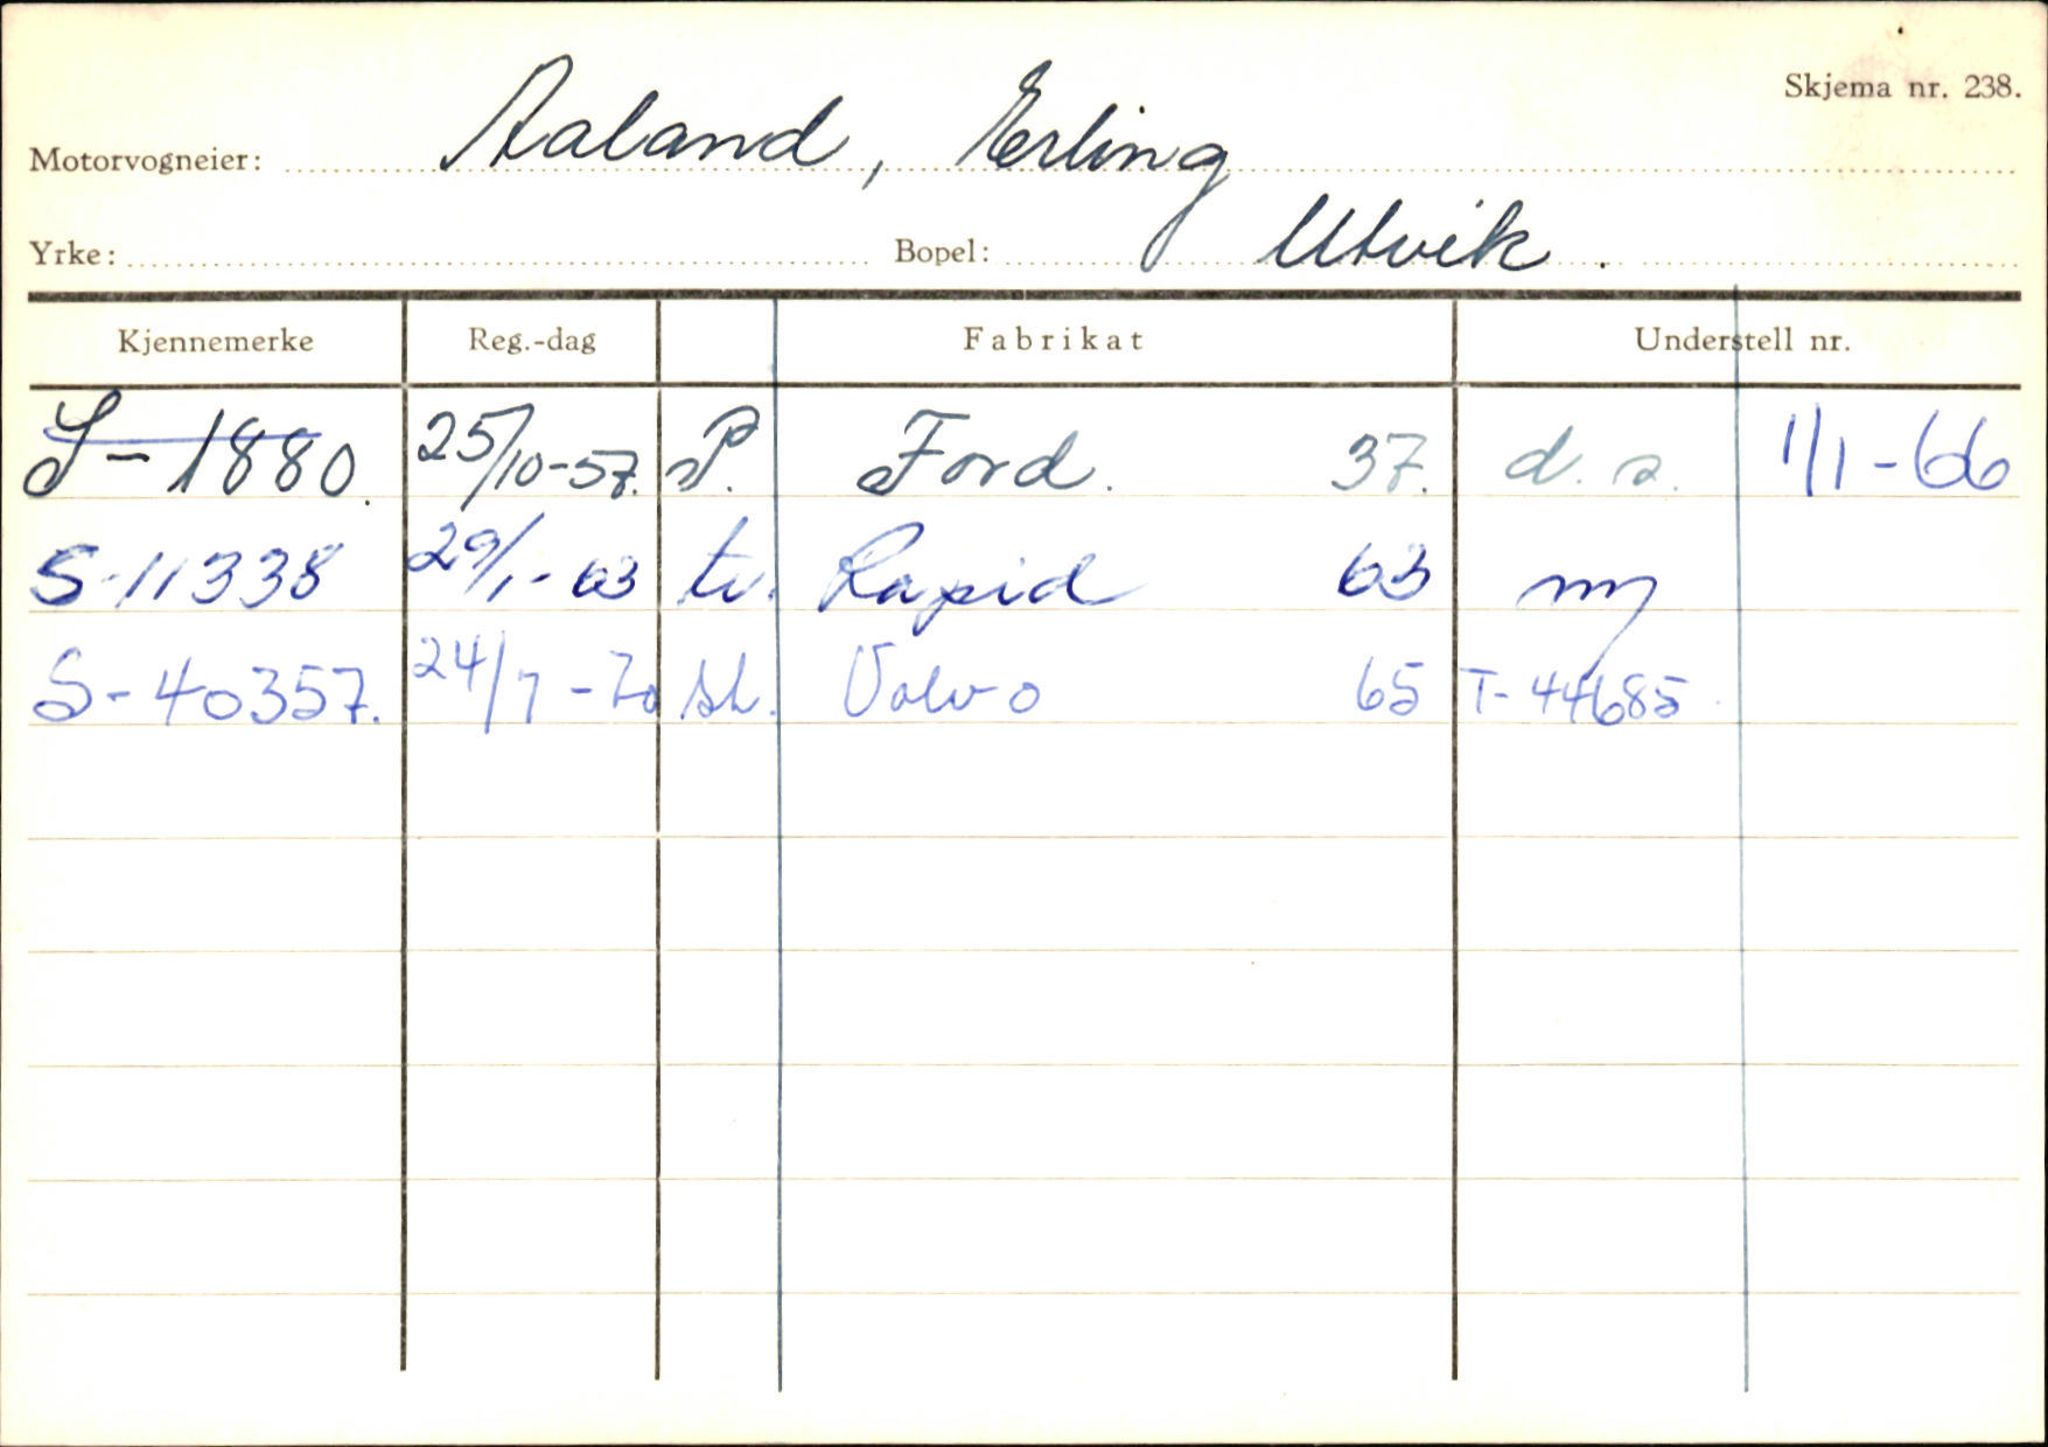 Skjema nr. 238.
Motorvogneier: Aaland, Erling
Yrke: Bopel: Utvik.
Kjennemerke Reg.-dag Fabrikat Understell nr.
S-1880. 25/10-57. P. Ford. 37. d.s. 1/1-66
S-11338 29/1-63 tv. Rapid 63 ny
S-40357. 24/7-70 st. Volvo 65 T-44685